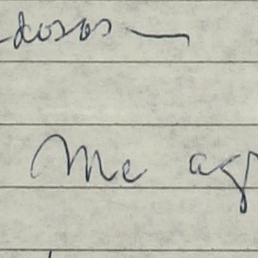 -dosos —
Me ag